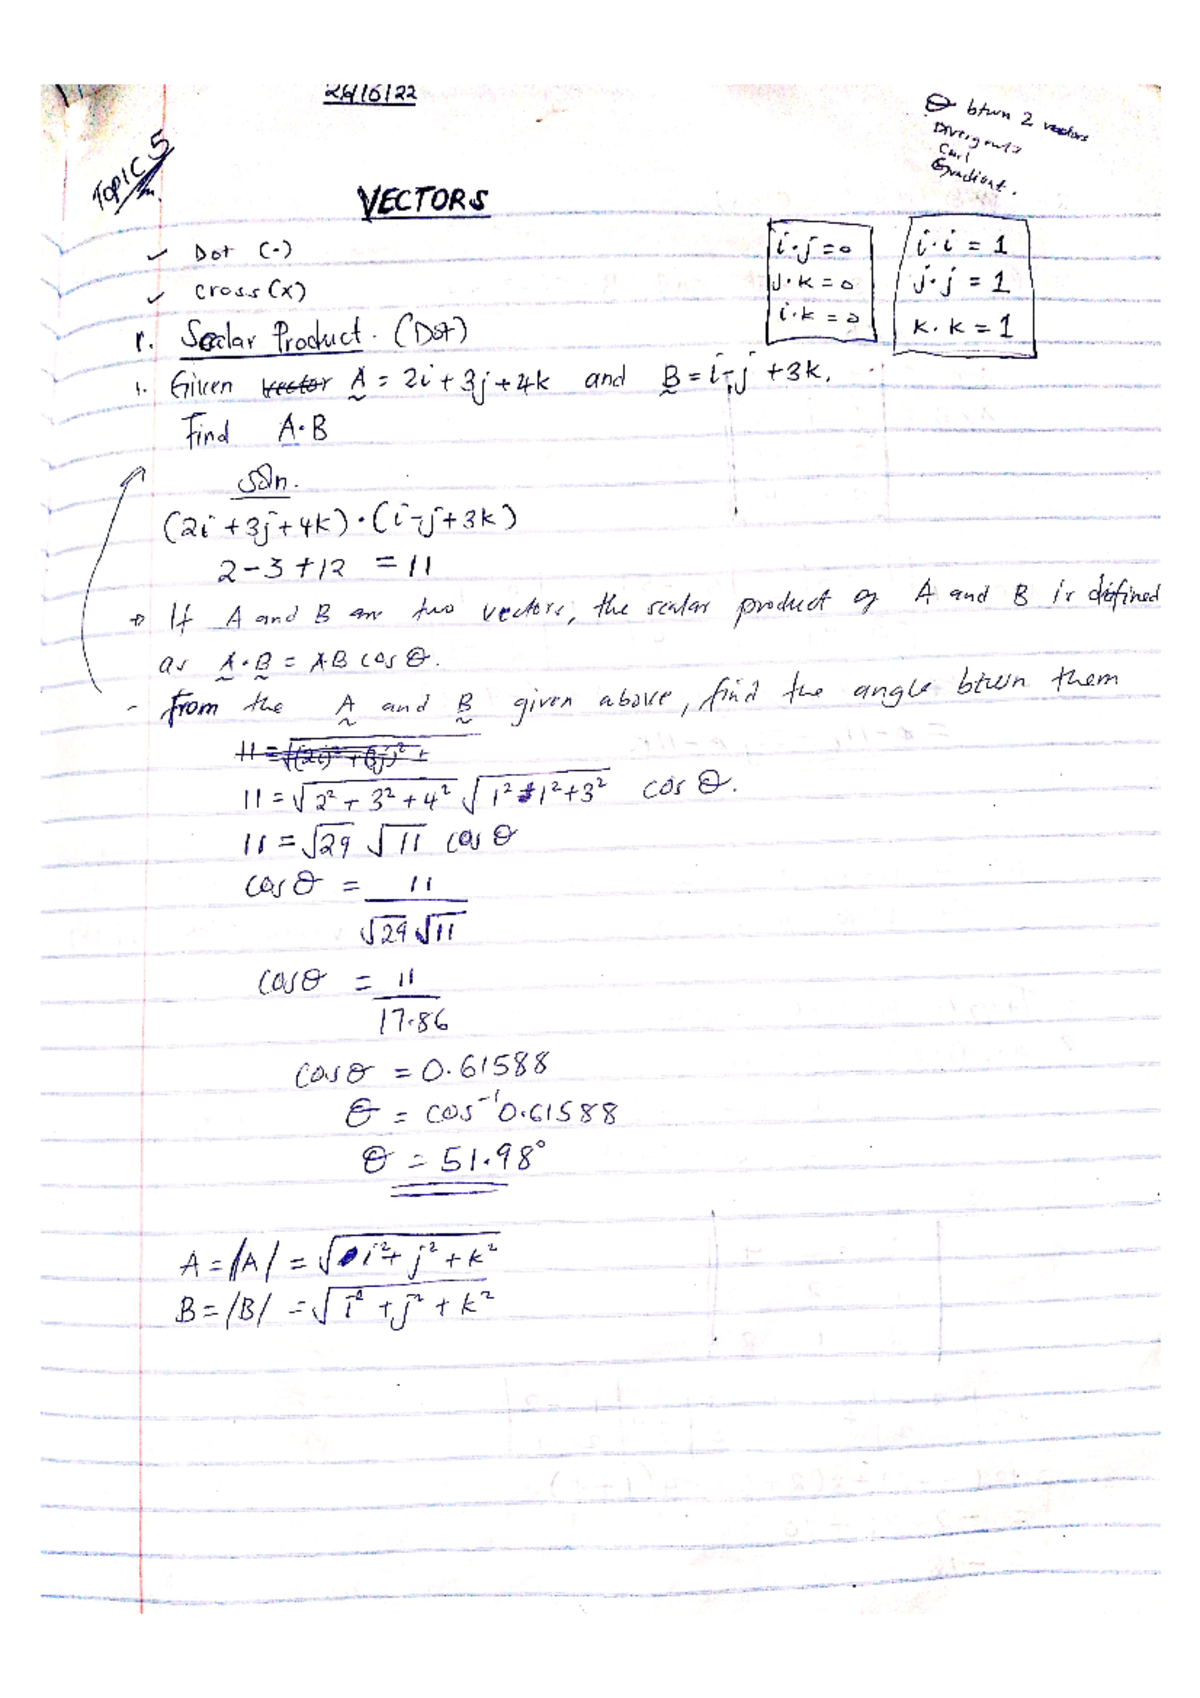 24/6/22
θ btwn 2 vectors
Divergents
Curl
Gradient.
TOPIC 5
VECTORS
✓ Dot (·)
✓ Cross (x)
i·j = 0
j·k = 0
i·k = 0
i·i = 1
j·j = 1
k·k = 1
1. Scalar Product. (Dot)
1. Given vector A = 2i + 3j + 4k and B = i - j + 3k.
Find A·B
Soln.
(2i + 3j + 4k)·(i - j + 3k)
2 - 3 + 12 = 11
→ If A and B are two vectors, the scalar product of A and B is defined
as A·B = AB cos θ.
- from the A and B given above, find the angle btwn them
11 = √(2i)² + (3j)² +
11 = √2² + 3² + 4² √1² + 1² + 3² cos θ.
11 = √29 √11 cos θ
cos θ = 11
√29 √11
cos θ = 11
17.86
cos θ = 0.61588
θ = cos⁻¹ 0.61588
θ = 51.98°
A = /A/ = √i² + j² + k²
B = /B/ = √i² + j² + k²